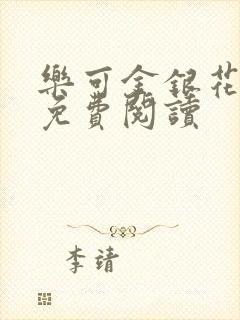 樂可金銀花
免費閱讀
李靖